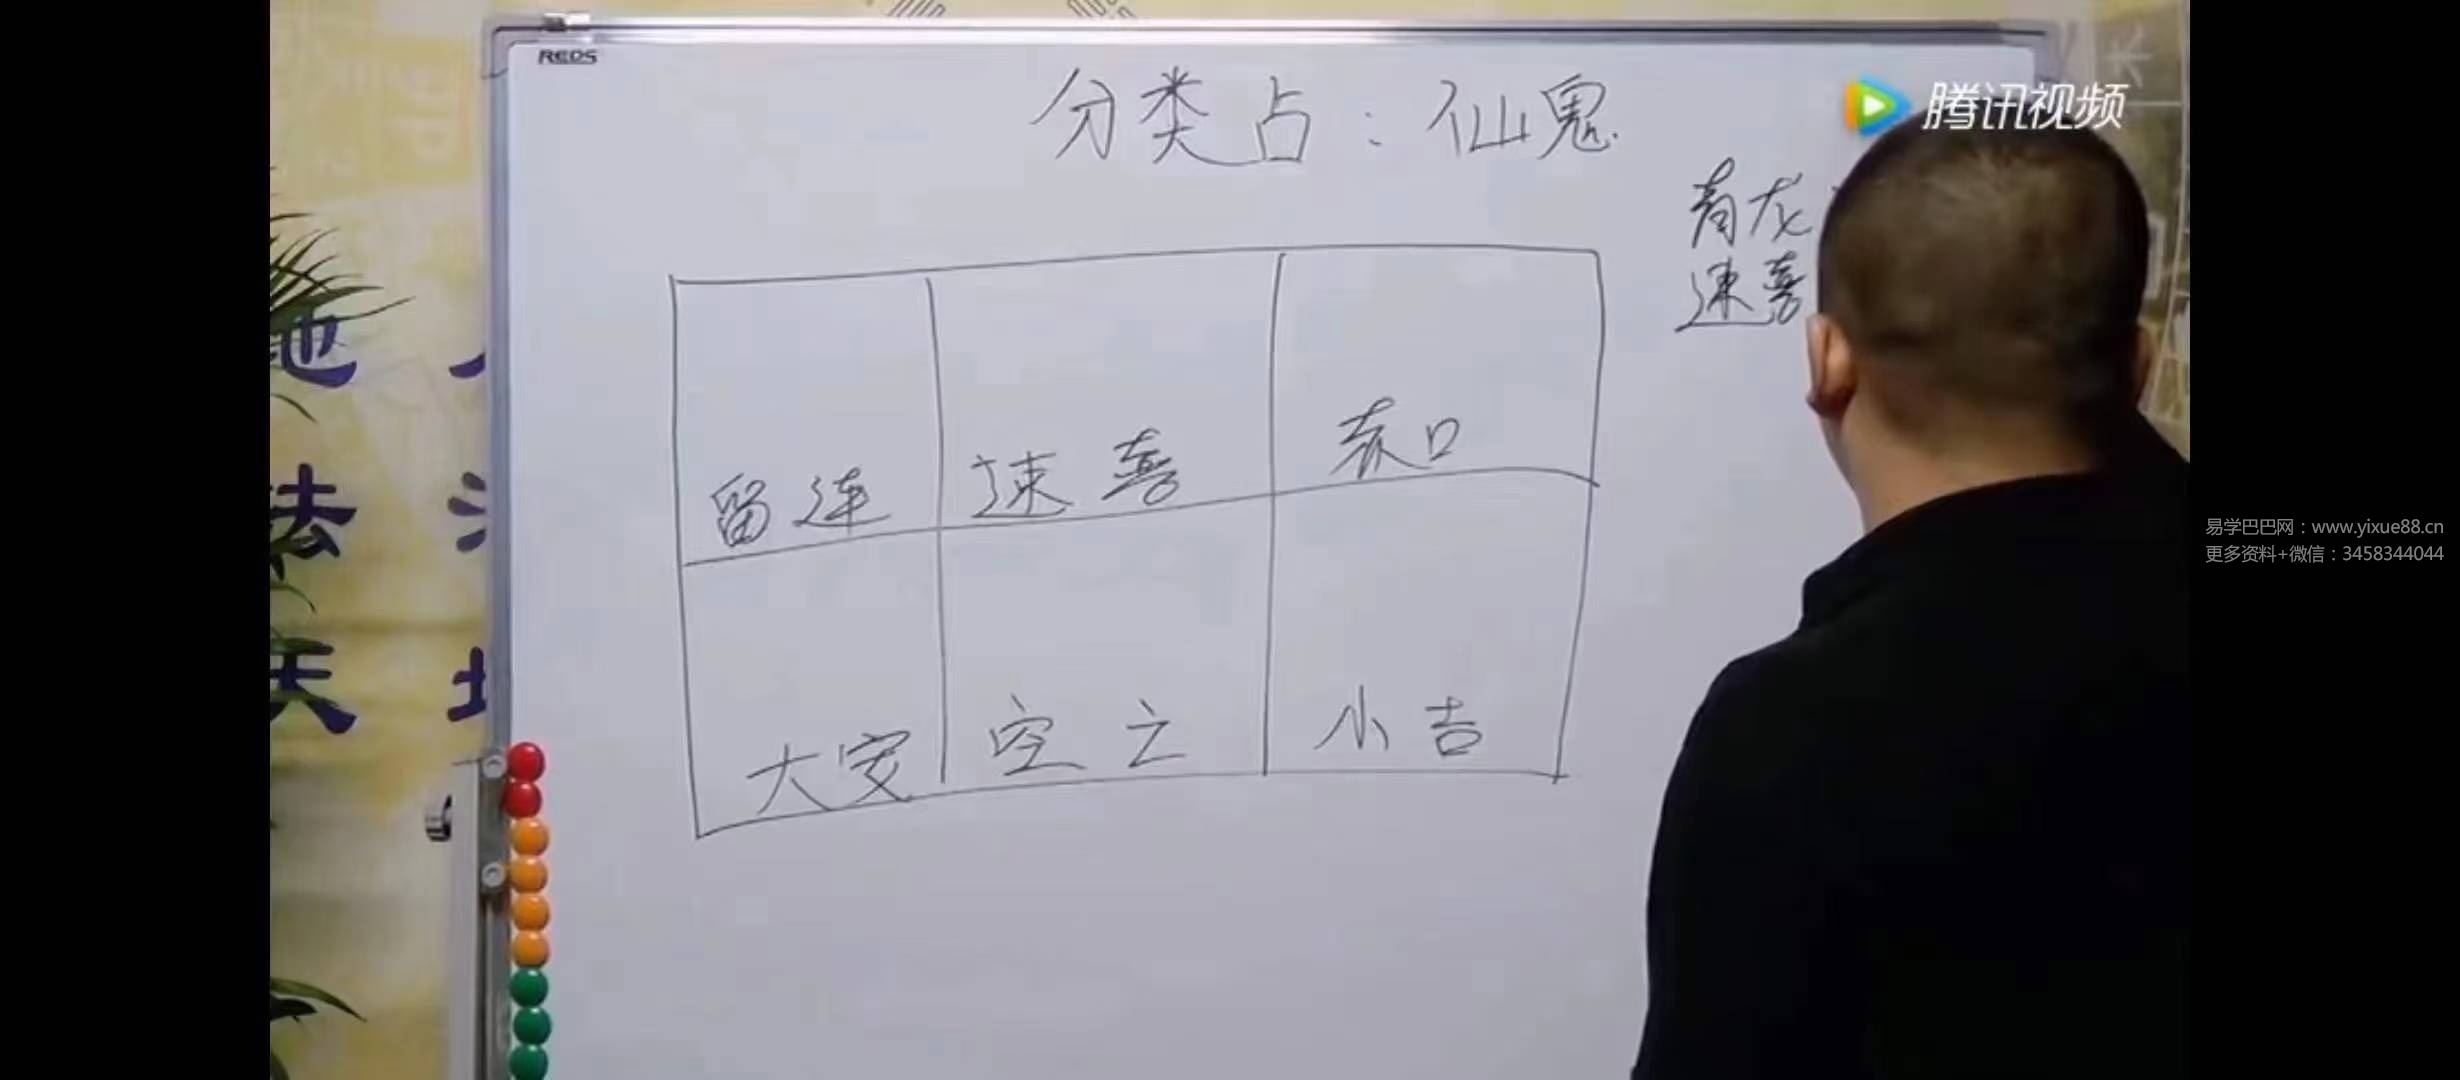 REDS
分类占：仙鬼
腾讯视频
青龙
速喜
留连 速喜 赤口
大安 空亡 小吉
易学巴巴网：www.yixue88.cn
更多资料+微信：3458344044
地
法
天